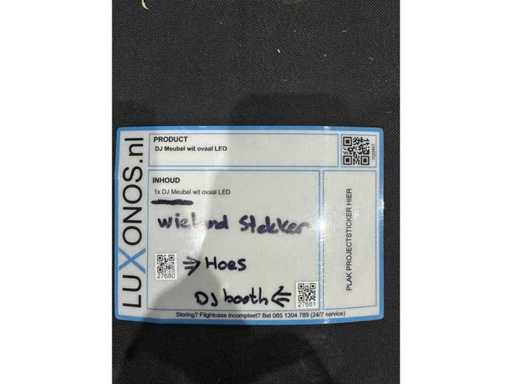 LUXONOS.nl
PRODUCT
DJ Meubel wit ovaal LED
INHOUD
1x DJ Meubel wit ovaal LED
wieland Stekker
27680
⇒ Hoes
DJ booth ⇐
27681
PLAK PROJECTSTICKER HIER
Storing? Flightcase incompleet? Bel 085 1304 789 (24/7 service)